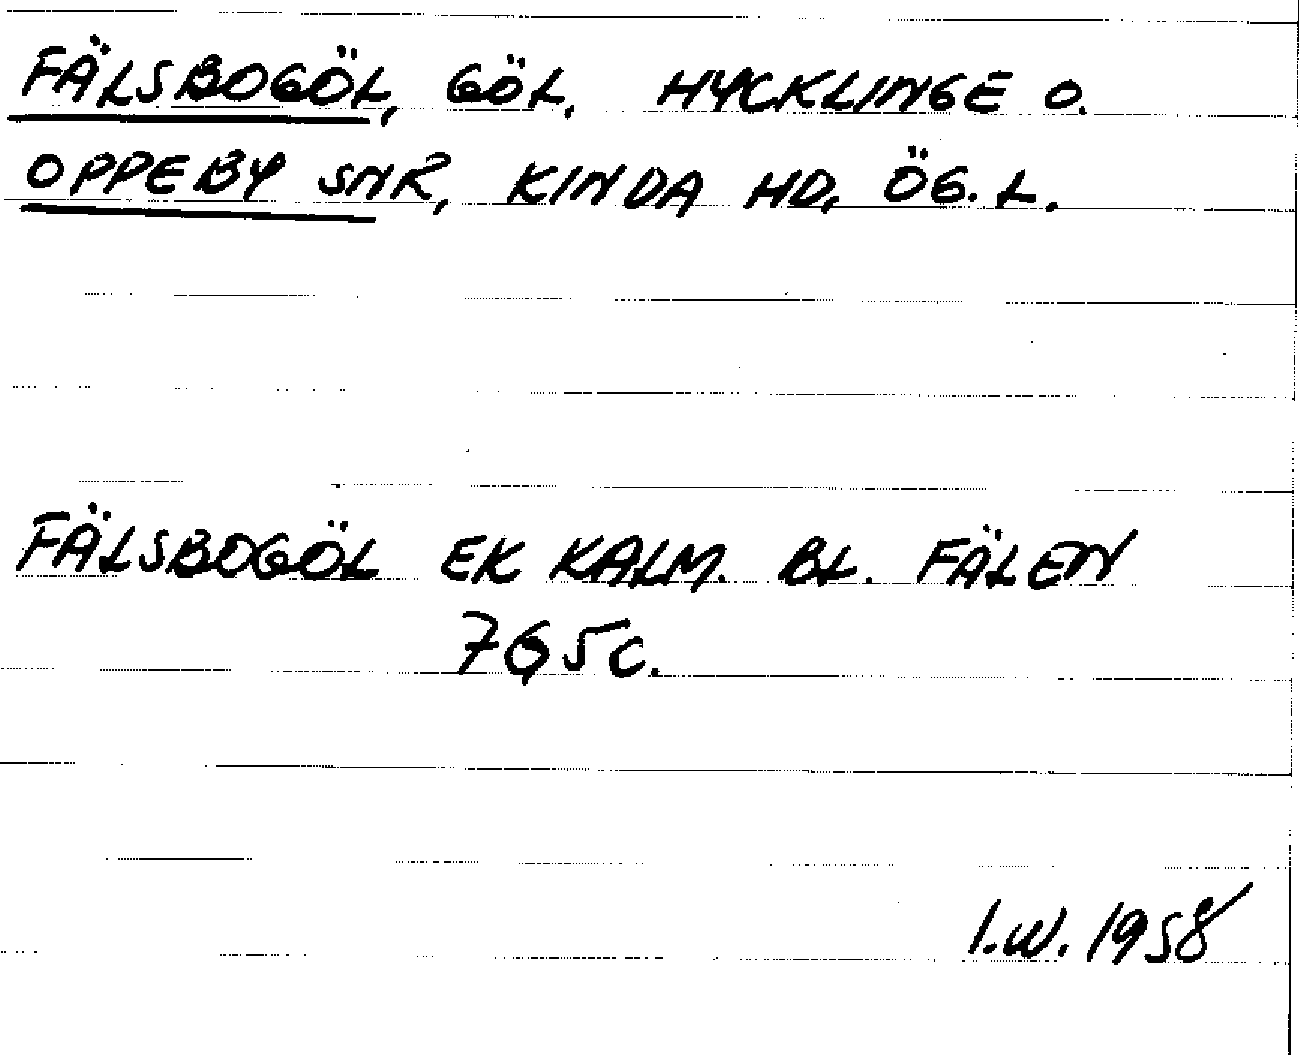 FÄLSBOGÖL, GÖL, HYCKLINGE O.
OPPEBY SNR, KINDA HD, ÖG. L.
FÄLSBOGÖL EK KALM. BL. FÄLEN
765c.
I.W. 1958